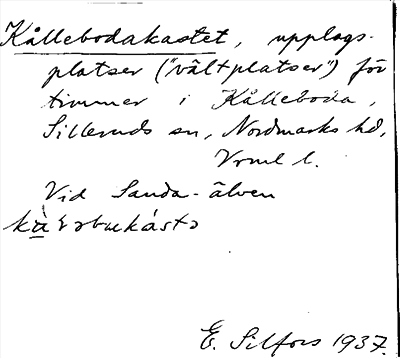 Kållebodakastet, upplags-
platser ("vältplatser") för
timmer i Kålleboda,
Silleruds sn, Nordmarks hd,
Vrml l.
Vid Sanda-älven
E. Silfors 1937.